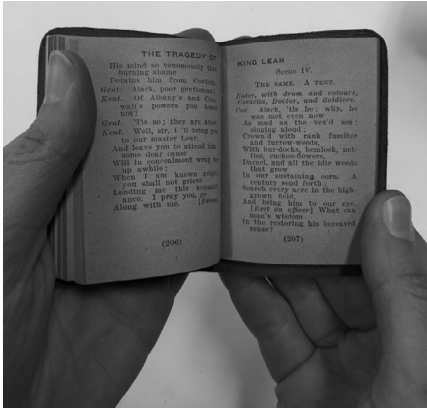 THE TRAGEDY OF
His mind so venomously that
burning shame
Detains him from Cordelia.
Gent. Alack, poor gentleman!
Kent. Of Albany's and
wall's powers you heard
not?
Gent. 'Tis so; they are afoot
Kent. Well, sir, I 'll bring you
to our master Lear,
And leave you to attend him
some dear cause
Will in concealment wrap me
up awhile;
When I am known aright,
you shall not grieve
Lending me this
ance. I pray you, go
Along with me. [Exeunt
(206)
KING LEAR
Scene IV.
THE SAME. A TENT.
Enter, with drum and colours,
Cordelia, Doctor, and Soldiers.
Cor. Alack, 'tis he: why, he
was met even now
As mad as the vex'd sea;
singing aloud;
Crown'd with rank fumiter
and furrow-weeds,
With bur-docks, hemlock, net-
tles, cuckoo-flowers,
Darnel, and all the idle weeds
that grow
In our sustaining corn. A
century send forth;
Search every acre in the high-
grown field,
And bring him to our eye.
[Exit an officer] What can
man's wisdom
In the restoring his bereaved
sense?
(207)